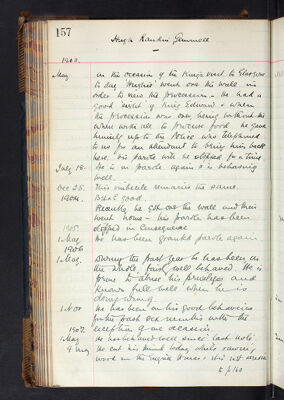 157
Hugh Rankin Gemmell
1903.
May On the occasion of the King's visit to Glasgow
to day Hughie went over the walls in
order to view the procession. He had a
good sight of King Edward & when
the procession was over, being without the
where with all to procure food he gave
himself up to the Police who telephoned
to us for an attendant to bring him back
here. His parole will be stopped for a time
July 18. He is on parole again & is behaving
well.
Dec 25. This imbecile remains the same.
1904. Health good.
Recently he got over the wall and then
went home – his parole has been
1905 stopped in consequence
1 May He has been granted parole again.
1906
1 May. During the past year he has been on
the whole fairly well behaved. He is
prone to abuse his privileges and
knows full well when he is
doing wrong
1 Nov He has been on his good behaviour
for the past six months with the
1907. exception of one occasion
1 May He has behaved well since last note.
9 May He cut his hand today while sawing
wood in the engine house; it is not
to p 160